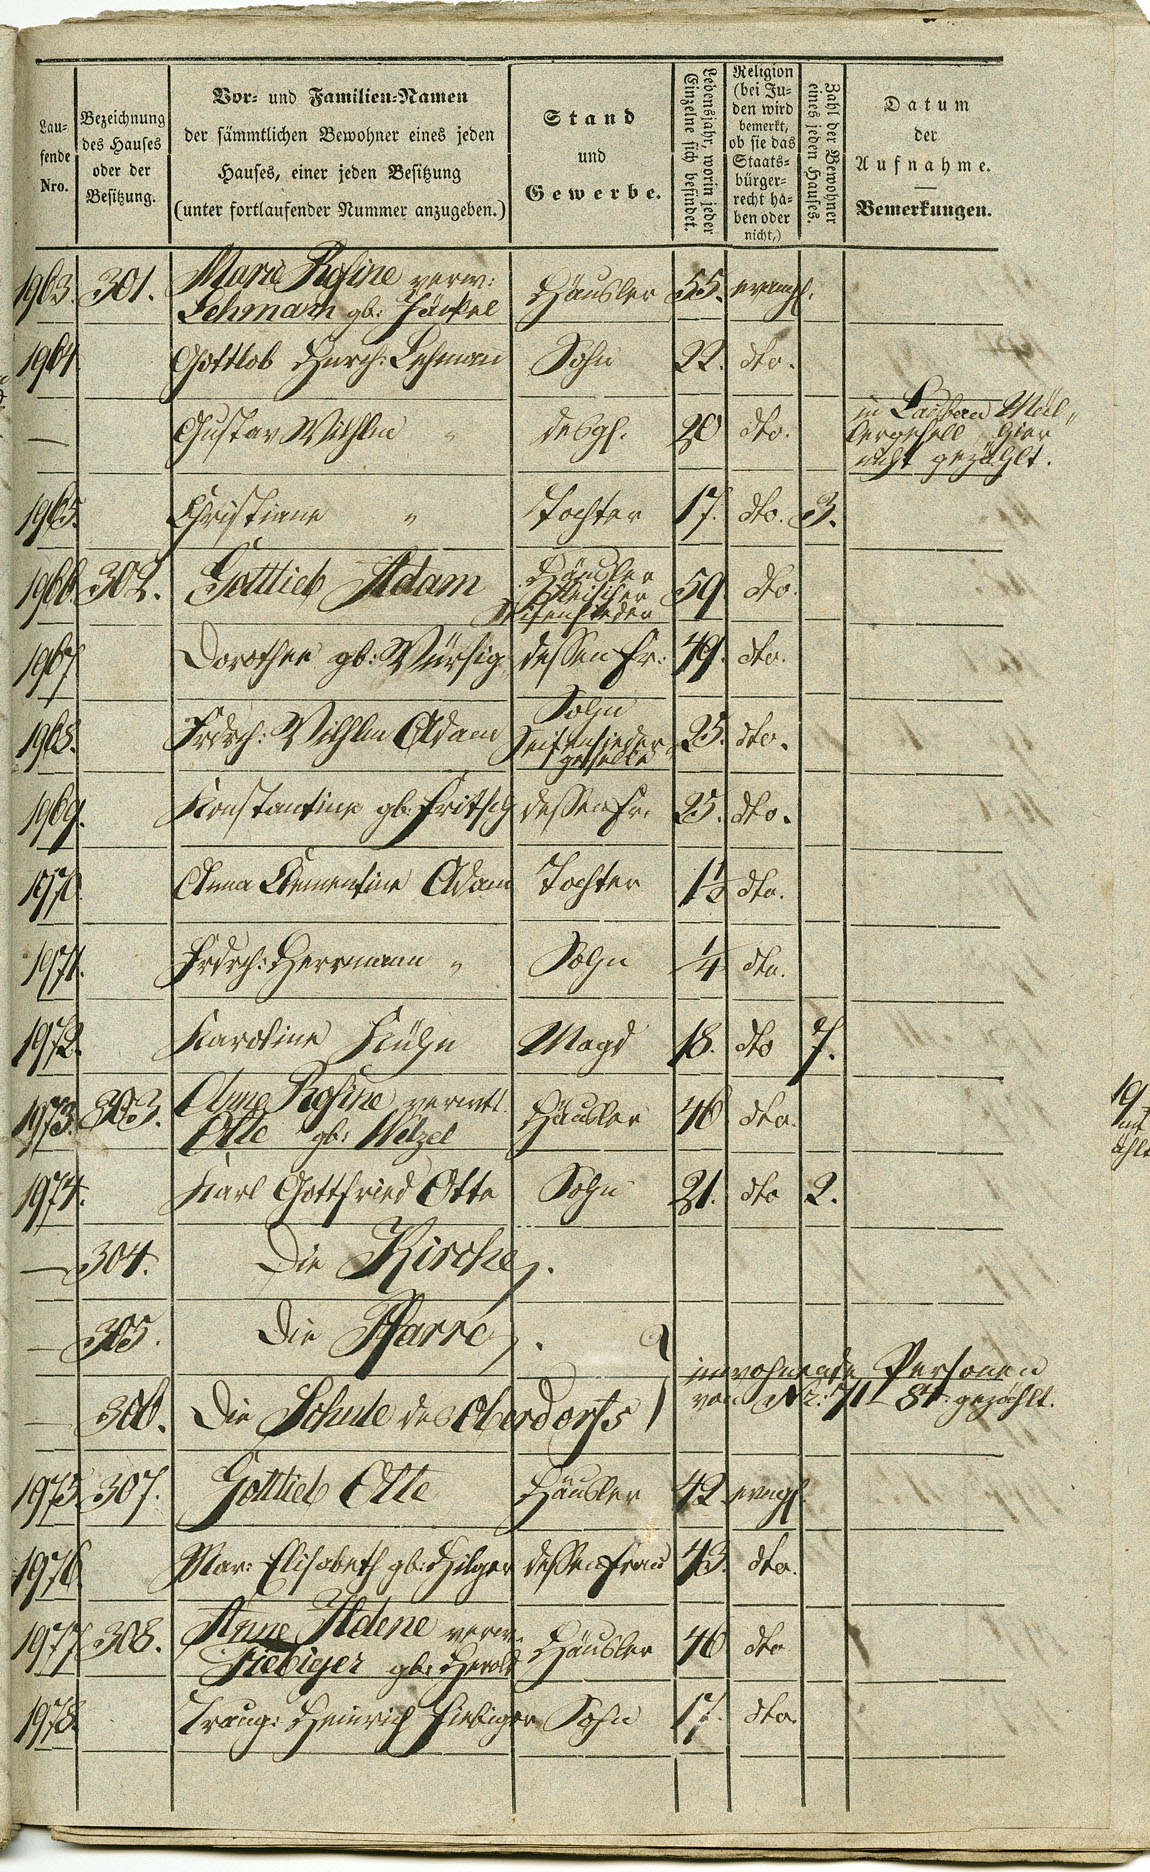 Lau-
fende
Nro.
Bezeichnung
des Hauses
oder der
Besitzung.
Vor- und Familien-Namen
der sämmtlichen Bewohner eines jeden
Hauses, einer jeden Besitzung
(unter fortlaufender Nummer anzugeben.)
Stand
und
Gewerbe.
Lebensjahr, worin jeder
Einzelne sich befindet.
Religion
(bei Ju-
den wird
bemerkt,
ob sie das
Staats-
bürger-
recht ha-
ben oder
nicht,)
Zahl der Bewohner
eines jeden Hauses.
Datum
der
Aufnahme.
Bemerkungen.
1963. 301. Marie Rosine verw: Häusler 55. evangl.
Lehmann gb: Jäckel
1964. Gottlob Lehmann Sohn 22. dto.
— Gustav Wilhlm " desgl. 20 dto. in Lauban Mül-
lergesell hier
nicht gezählt.
1965. Christiane " Tochter 17. dto. 3.
1966. 302. Gottlieb Adam Häusler 59 dto.
Fleischer
Seifensieder
1967 Dorothee gb: Würsig dessen Fr: 49. dto.
1968. Frdrch: Wilhlm Adam Sohn 25. dto.
Seifensieder-
geselle
1969. Konstantine gb: Fritsch dessen Fr. 25. dto.
1970. Anna Clementine Adam Tochter 1½ dto.
1971. Frdrch: Herrmann " Sohn ¼ dto.
1972. Karoline Kühn Magd 18. dto 7.
1973. 303. Anne Rosine verwtt. Häusler 46 dto.
Otte gb: Welzel
1974. Karl Gottfried Otte Sohn 21. dto 2.
— 304. Die Kirche.
— 305. Die Pfarre.
inwohnende Personen
— 306. Die Schule des Oberdorfs
von Nr: 71 - 84. gezählt.
1975. 307. Gottlieb Otte Häusler 42 evngl.
1976. Mar: Elisabeth gb: Hilger dessen Frau 43. dto.
1977 308. Anne Helene verw. Häusler 46 dto
Fiebiger gb: Herold
1978. Traug: Heinrich Fiebiger Sohn 17. dto.